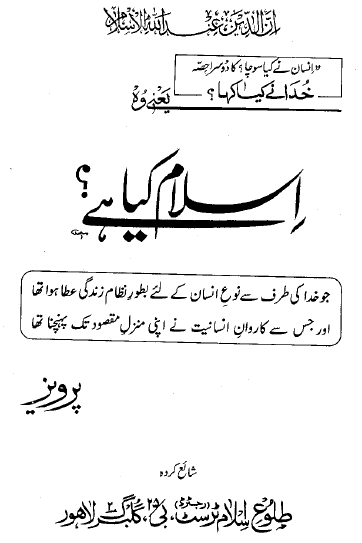 ان الدین عند اللہ الاسلام
"انسان نے کیا سوچا؟" کا دوسرا حصّہ
خُدا نے کیا کہا؟
یعنی وہ
اِسلام کیا ہے؟
جو خدا کی طرف سے نوعِ انسان کے لئے بطورِ نظامِ زندگی عطا ہوا تھا
اور جس سے کاروانِ انسانیت نے اپنی منزلِ مقصود تک پہنچنا تھا
پرویز
شائع کردہ
طلوعِ اسلام ٹرسٹ (رجسٹرڈ)، ۲۵ بی، گلبرگ ۲ لاہور